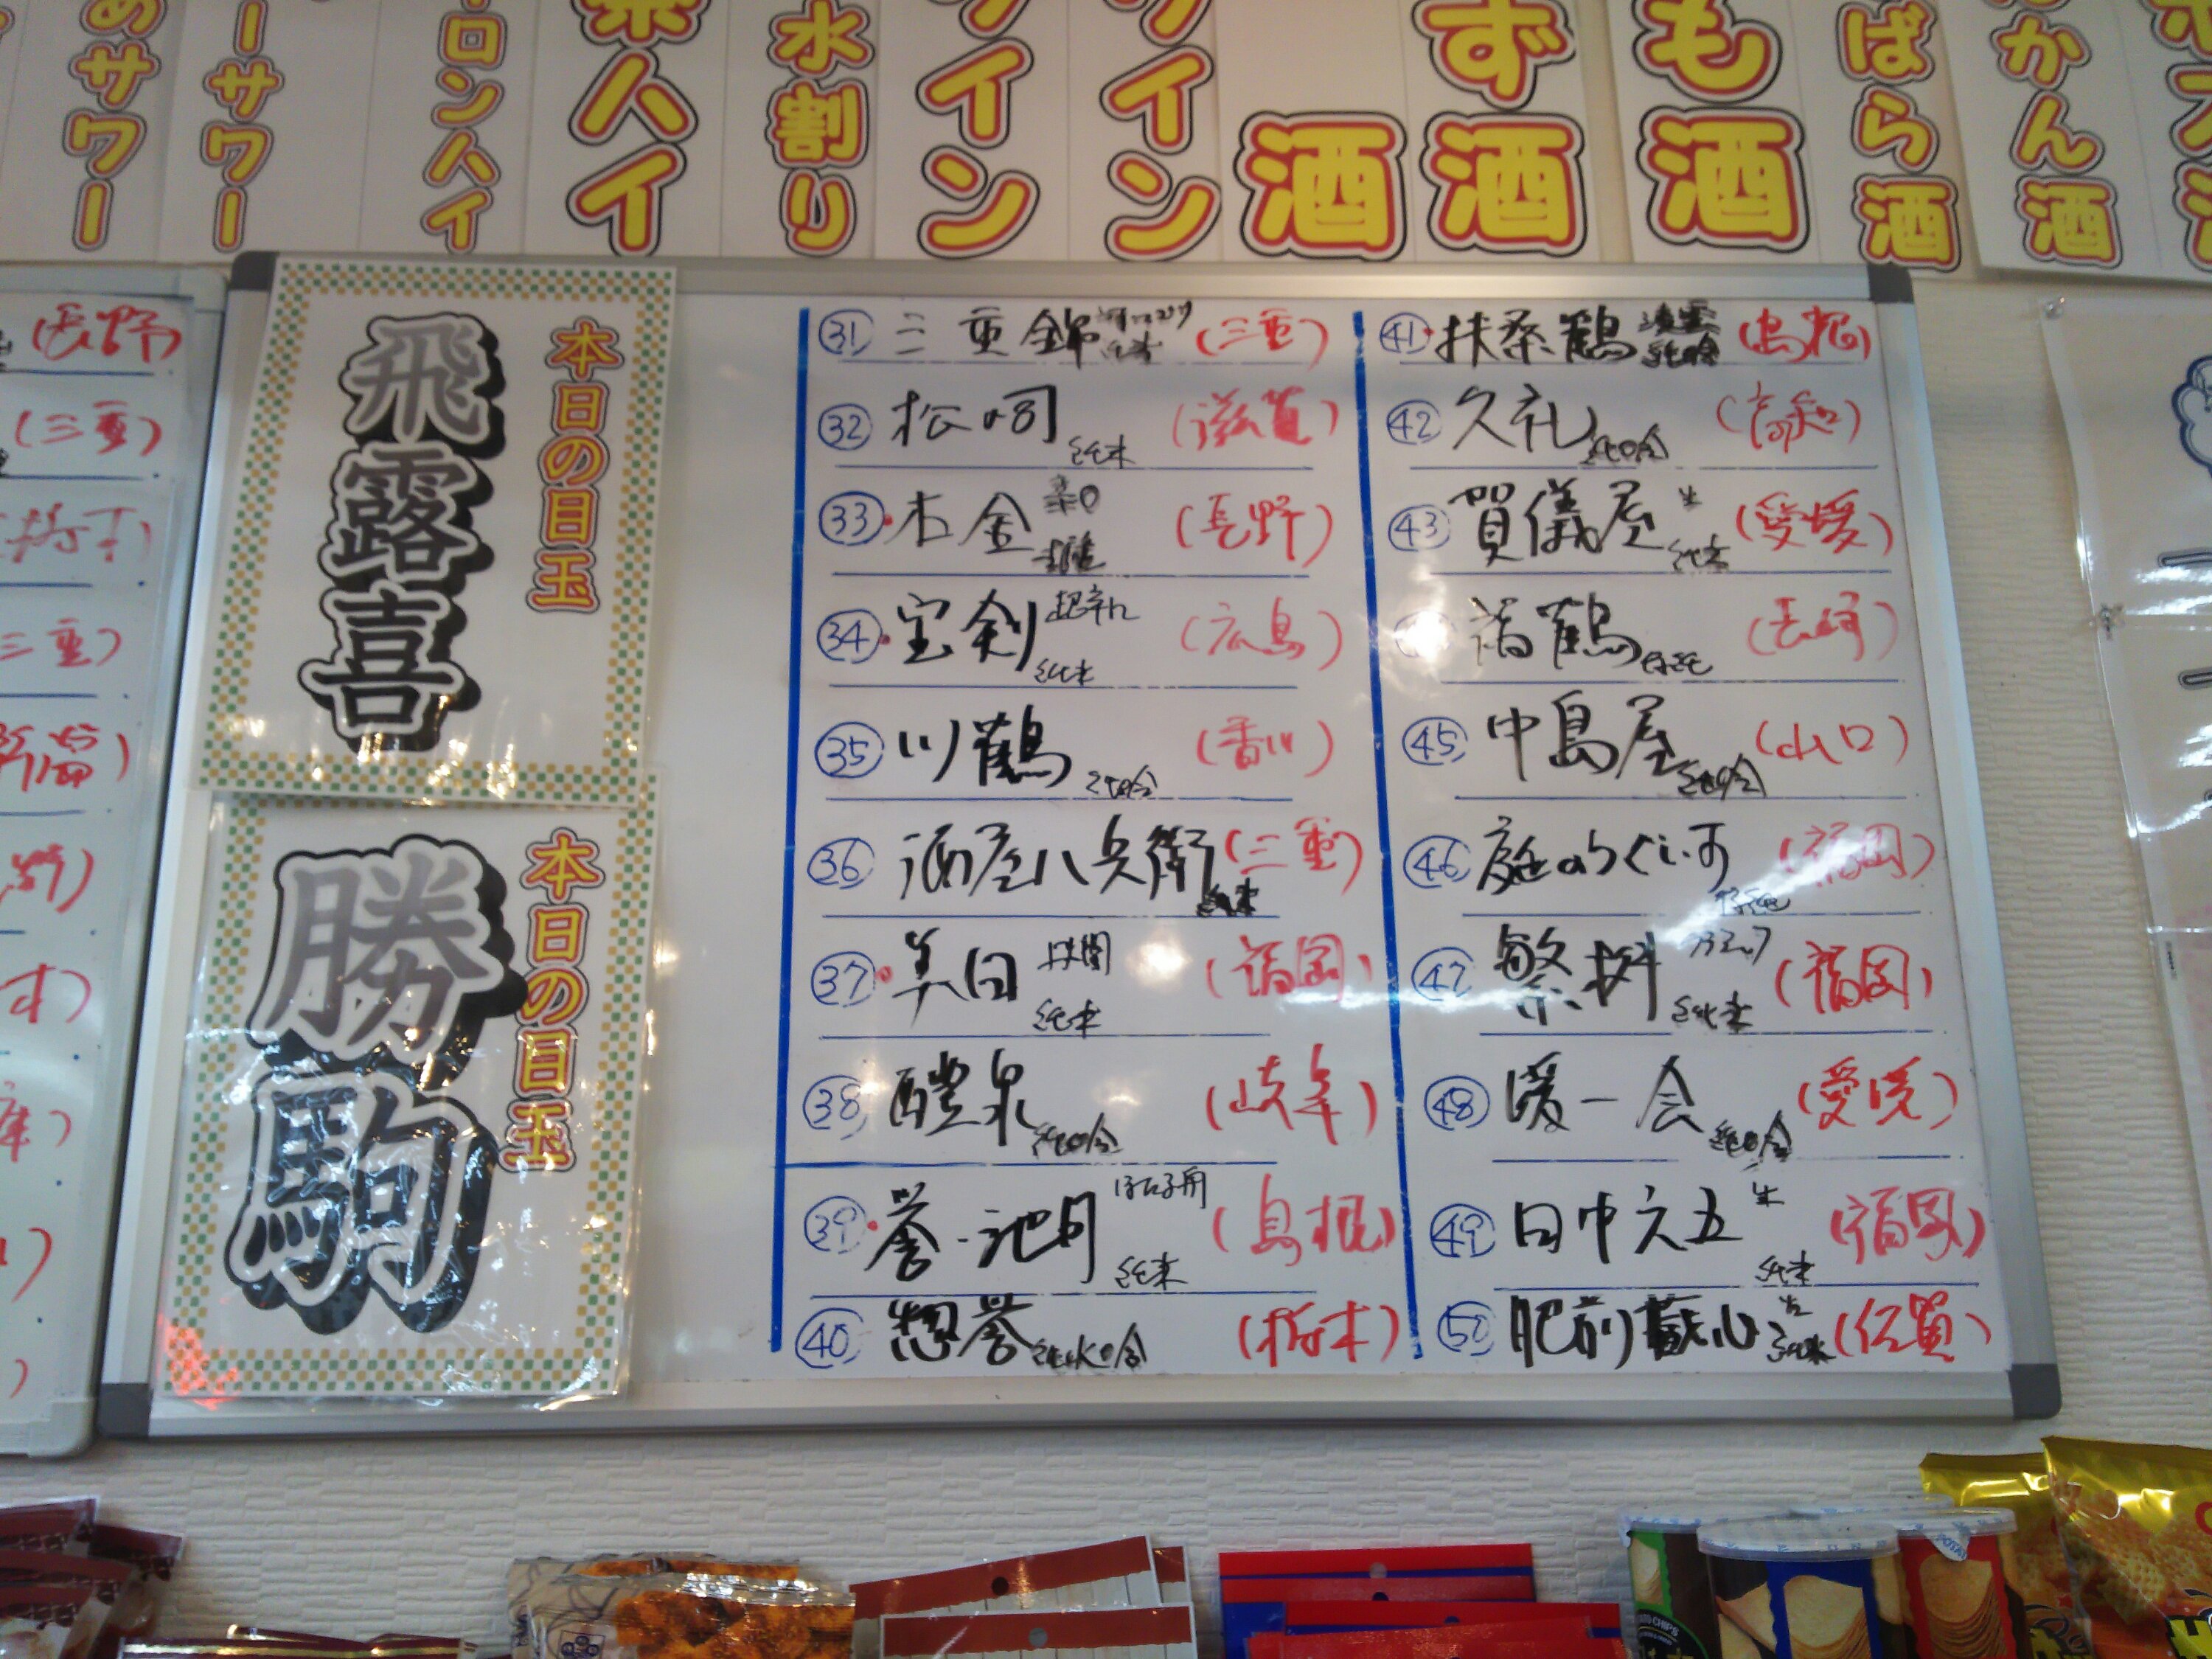 サワー
ーサワー
ロンハイ
茶ハイ
水割り
イン
イン
酒
ず酒
も酒
ばら酒
かん酒
本日の目玉
飛露喜
本日の目玉
勝駒
(長野)
(三重)
(栃木)
(三重)
㉛ 三重錦 純米 (三重)
㉜ 松の司 純米 (滋賀)
㉝ 杏金 (長野)
㉞ 宝剣 超辛口 純米 (広島)
㉟ 川鶴 純吟 (香川)
㊱ 酒屋八兵衛 純米 (三重)
㊲ 美田 純米 (福岡)
㊳ 醴泉 純吟 (岐阜)
㊴ 誉池月 純米 (島根)
㊵ 惣誉 純米吟 (栃木)
㊶ 扶桑鶴 純吟 (島根)
㊷ 久礼 純吟 (高知)
㊸ 賀儀屋 生 純米 (愛媛)
福鶴 特純 (長崎)
㊺ 中島屋 純吟 (山口)
㊻ 庭のうぐいす 特純 (福岡)
㊼ 繁桝 純米 (福岡)
㊽ 媛一会 純吟 (愛媛)
㊾ 田中六五 生 純米 (福岡)
㊿ 肥前蔵心 生 純米 (佐賀)